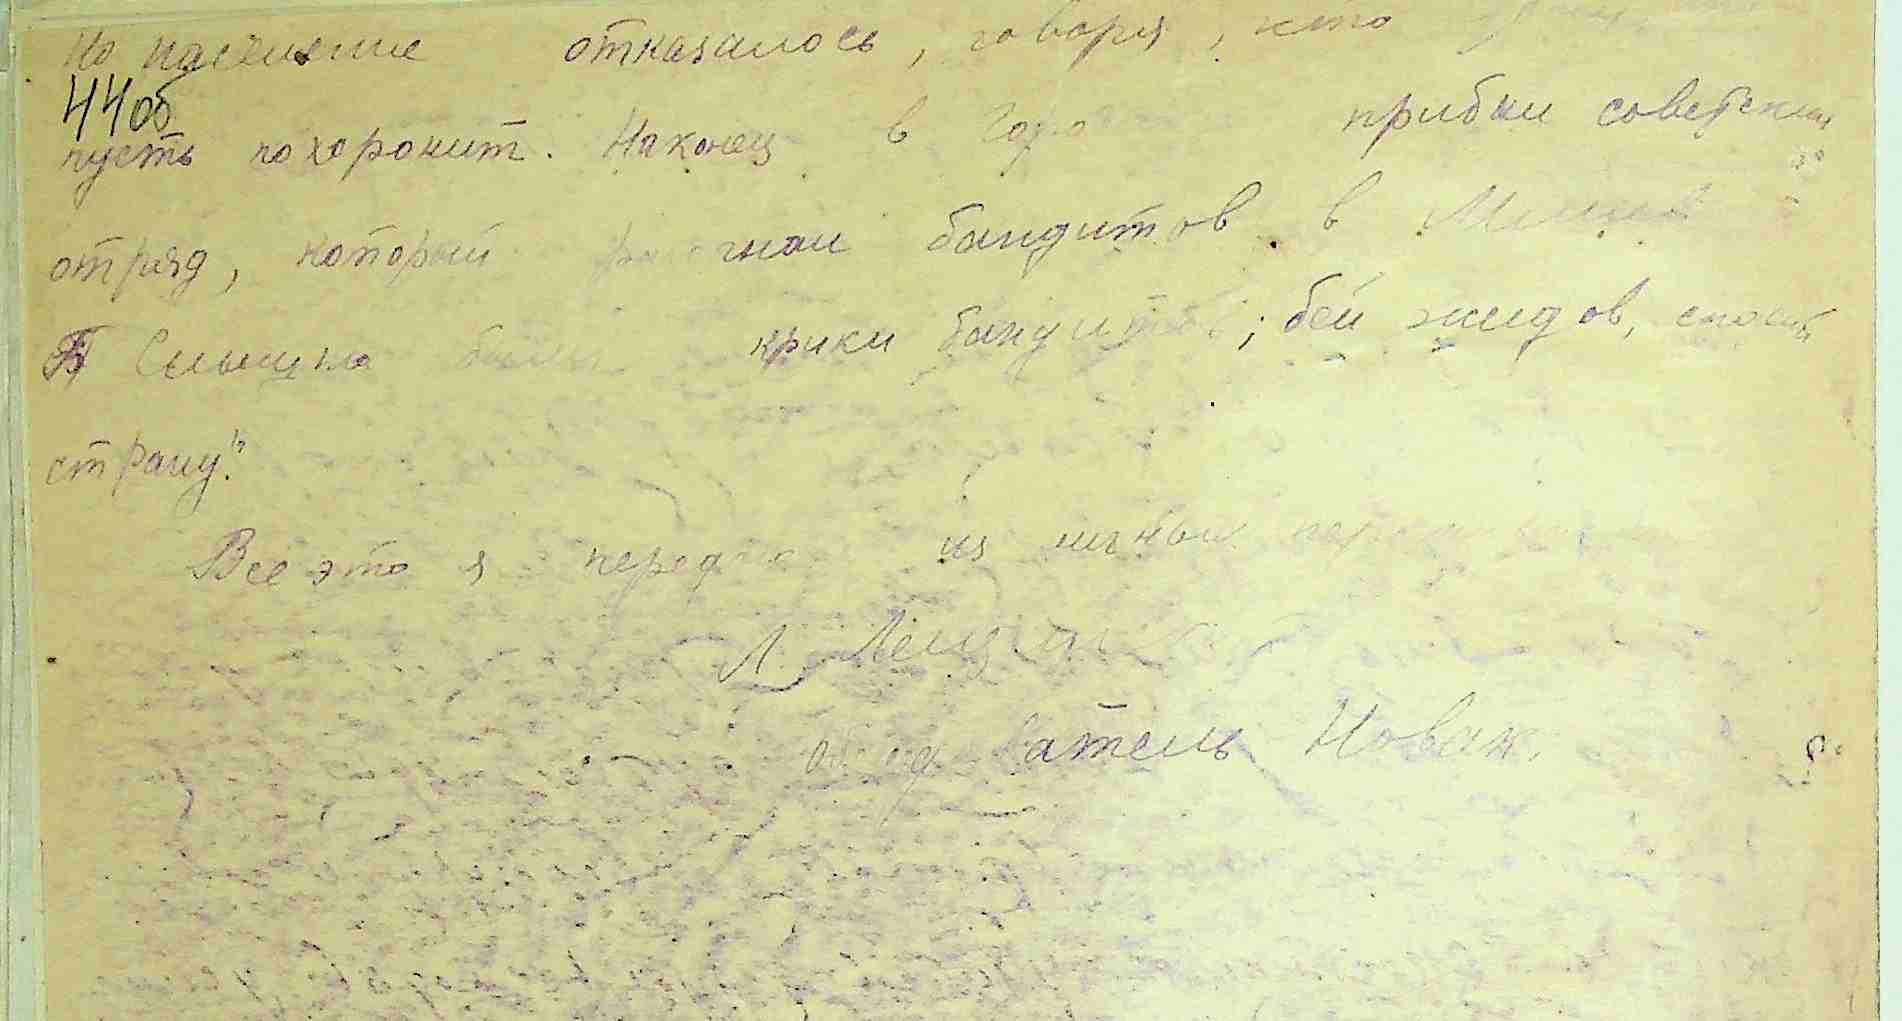 Но население отказалось, говоря, кто
44об
пусть похоронит. Наконец в прибыл советский
отряд, который разогнал бандитов в
Слышно были крики бандитов; бей жидов, спасай
страну".
Все это я передаю из личных
Л.
обследователь Новак